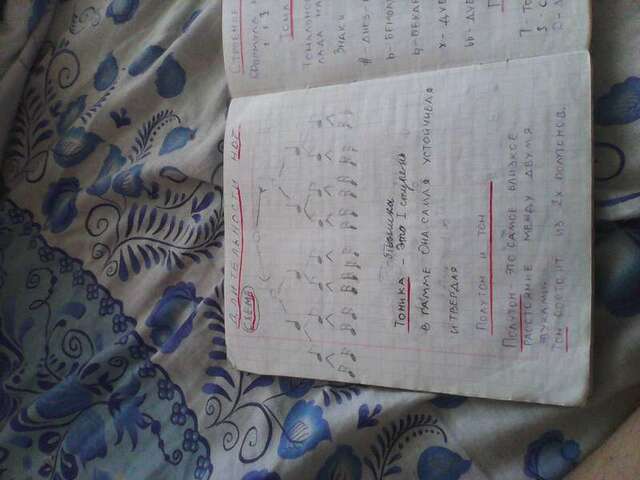 ДЛИТЕЛЬНОСТИ НОТ
СХЕМА
Тоника - это I ступень
в гамме она самая устойчивая
и твёрдая
Полутон и тон
Полутон это самое близкое
расстояние между двумя
звуками.
Тон состоит из 2х полтонов.
Строение
Тональнос
лада на
знаки
# диез -
b - бемол
ч - бекар
x - ду
bb - ду